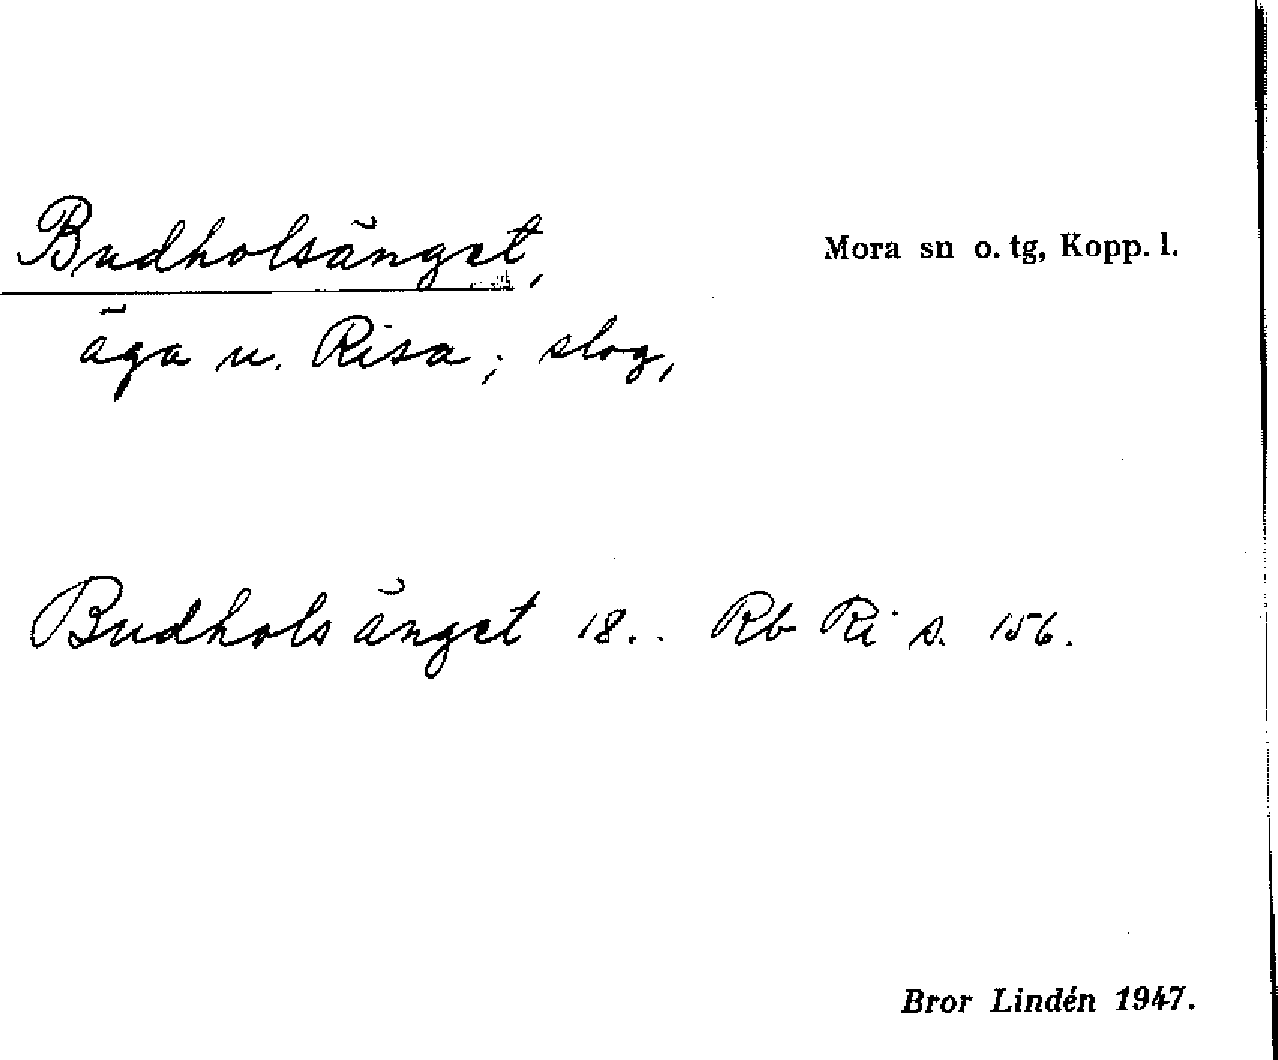 Budholsänget,
Mora sn o. tg, Kopp. l.
äga u. Risa; slog,
Budhols änget 18.. Rb Ri s. 156.
Bror Lindén 1947.